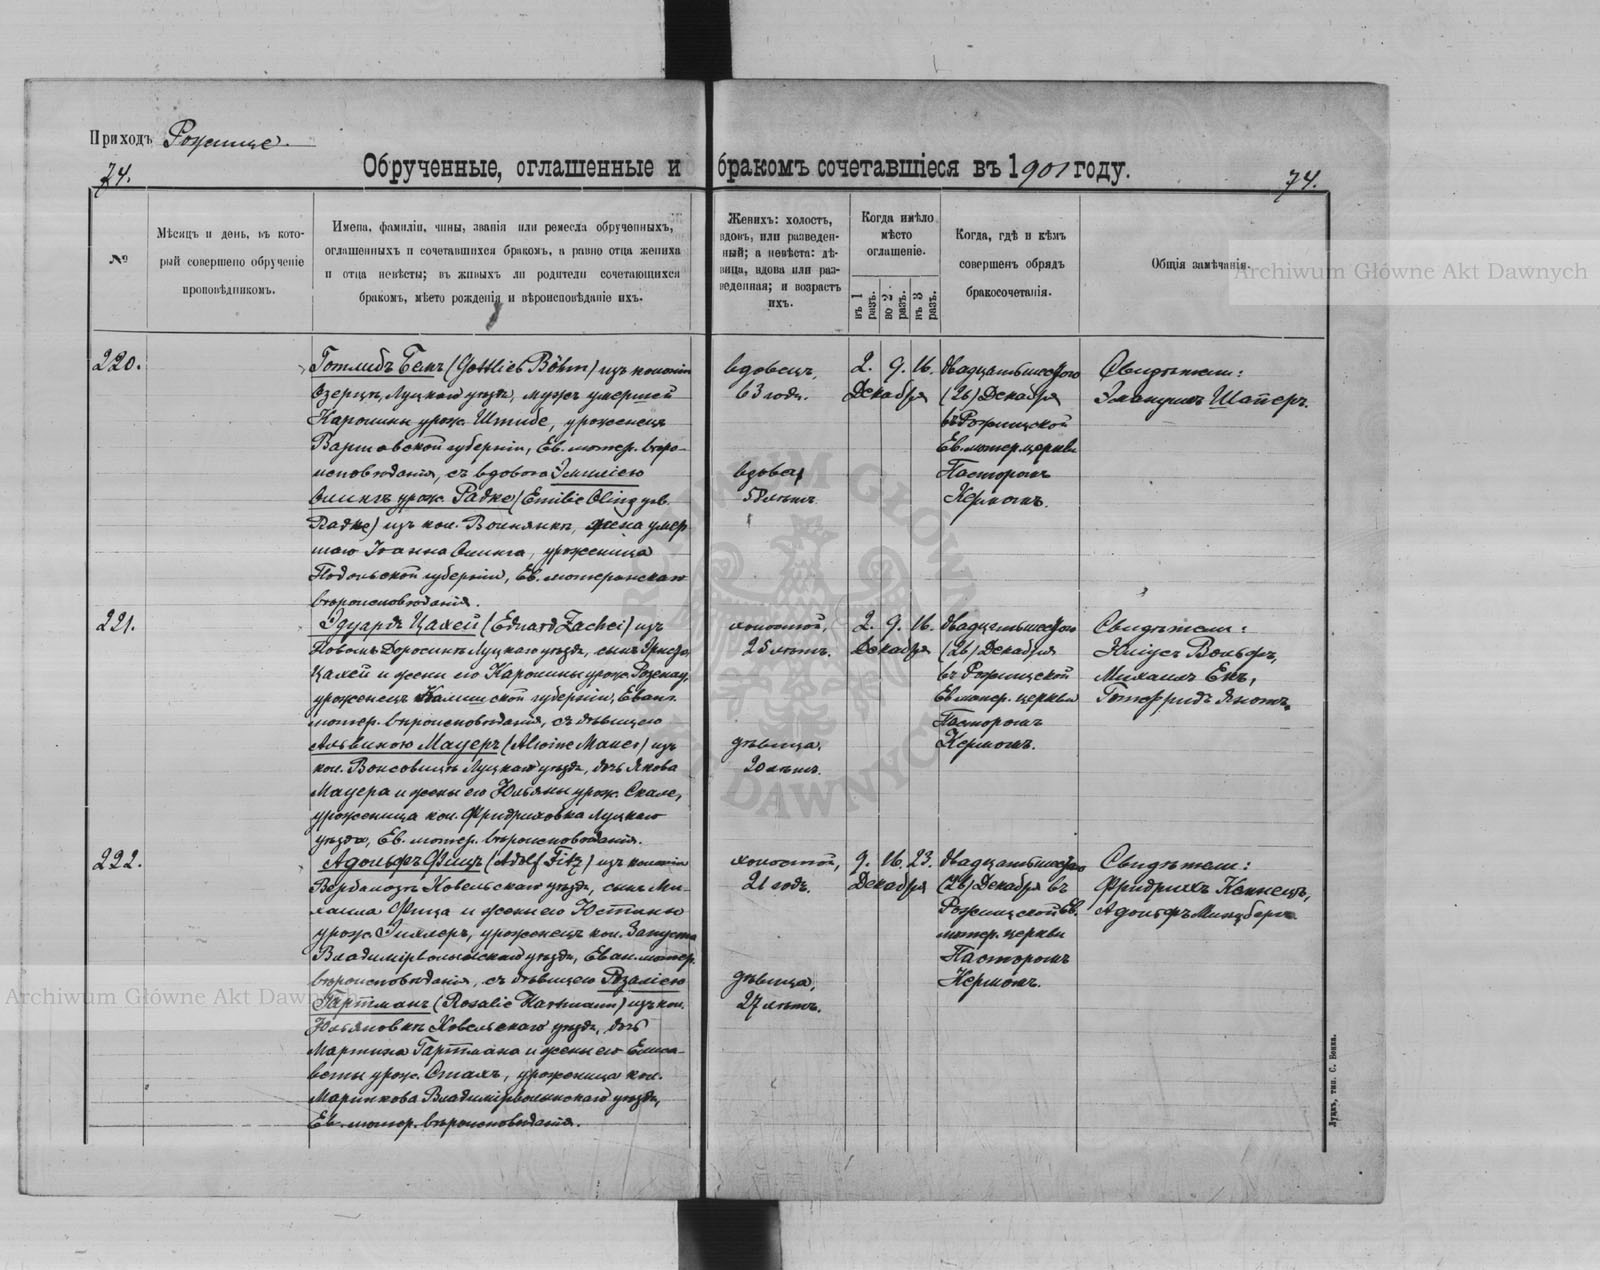 Приходъ Рожище.
74.
Обрученные, оглашенные и бракомъ сочетавшіеся въ 1901 году.
74.
№
Мѣсяцъ и день, въ кото-
рый совершено обрученіе
проповѣдникомъ.
Имена, фамиліи, чины, званія или ремесла обрученныхъ,
оглашенныхъ и сочетавшихся бракомъ, а равно отца жениха
и отца невѣсты; въ живыхъ ли родители сочетающихся
бракомъ, мѣсто рожденія и вѣроисповѣданіе ихъ.
Женихъ: холостъ,
вдовъ, или разведен-
ный; а невѣста: дѣ-
вица, вдова или раз-
веденная; и возрастъ
ихъ.
Когда имѣло
мѣсто
оглашеніе.
въ 1 разъ.
во 2 разъ.
въ 3 разъ.
Когда, гдѣ и кѣмъ
совершенъ обрядъ
бракосочетанія.
Общія замѣчанія.
220.
Готлибъ Бемъ (Gottlieb Böhm) изъ колоніи
Озерцъ, Луцкаго уѣзда, мужъ умершей
Каролины урож. Штибе, уроженецъ
Варшавской губерніи, Ев. лютер. вѣро-
исповѣданія, съ вдовою Эмиліею
Олингъ урож. Радке (Emilie Oling geb.
Radke) изъ кол. Волнянки, жена умер-
шаго Іоанна Олинга, уроженица
Подольской губерніи, Ев. лютеранскаго
вѣроисповѣданія.
вдовецъ,
63 года.
вдова,
лѣтъ.
2. 9. 16.
Декабря
двадцатьшестого
(26) Декабря
въ Рожищской
Ев. лютер. церкви
Пасторомъ
Кермомъ.
Свидѣтели:
Эмануилъ Шаперъ.
221.
Эдуардъ Цахей (Eduard Zachei) изъ
Новомъ Доросинѣ Луцкаго уѣзда, сынъ
Цахей и жены его Каролины урож. Розенау,
уроженецъ Калишской губерніи, Еванг.
лютер. вѣроисповѣданія, съ дѣвицею
Альвиною Мауеръ (Alwine Mauer) изъ
кол. Луцкаго уѣзда, дочь Якова
Мауера и жены его Юльяны урож. Скале,
уроженица кол. Фридриховка Луцкаго
уѣзда, Ев. лютер. вѣроисповѣданія.
холостой,
25 лѣтъ.
дѣвица,
20 лѣтъ.
2. 9. 16.
Декабря
двадцатьшестого
(26) Декабря
въ Рожищской
Ев. лютер. церкви
Пасторомъ
Кермомъ.
Свидѣтели:
Юліусъ Вольфъ,
Михаилъ Екъ,
Готфридъ
222.
Адольфъ Фицъ (Adolf Fitz) изъ колоніи
Вербамозъ Ковельскаго уѣзда, сынъ Ми-
хаила Фица и жены его Юстины
урож. Миллеръ, уроженецъ кол. Запуста
Владимірволынскаго уѣзда, Еван. лютер.
вѣроисповѣданія, съ дѣвицею Розаліею
Гартманъ (Rosalie Hartmann) изъ кол.
Юльяновки Ковельскаго уѣзда, дочь
Мартина Гартмана и жены его Елиса-
веты урож. Стахъ, уроженица кол.
Маринкова Владимірволынскаго уѣзда,
Ев. лютер. вѣроисповѣданія.
холостой,
21 годъ.
дѣвица,
27 лѣтъ.
9. 16. 23.
Декабря
двадцатьшестого
(26) Декабря въ
Рожищской Ев.
лютер. церкви
Пасторомъ
Кермомъ.
Свидѣтели:
Фридрихъ
Адольфъ Минцбергъ
Луцкъ, тип. С. Бонка.
Archiwum Główne Akt Dawnych
Archiwum Główne Akt Dawnych
ARCHIWUM GŁÓWNE AKT DAWNYCH